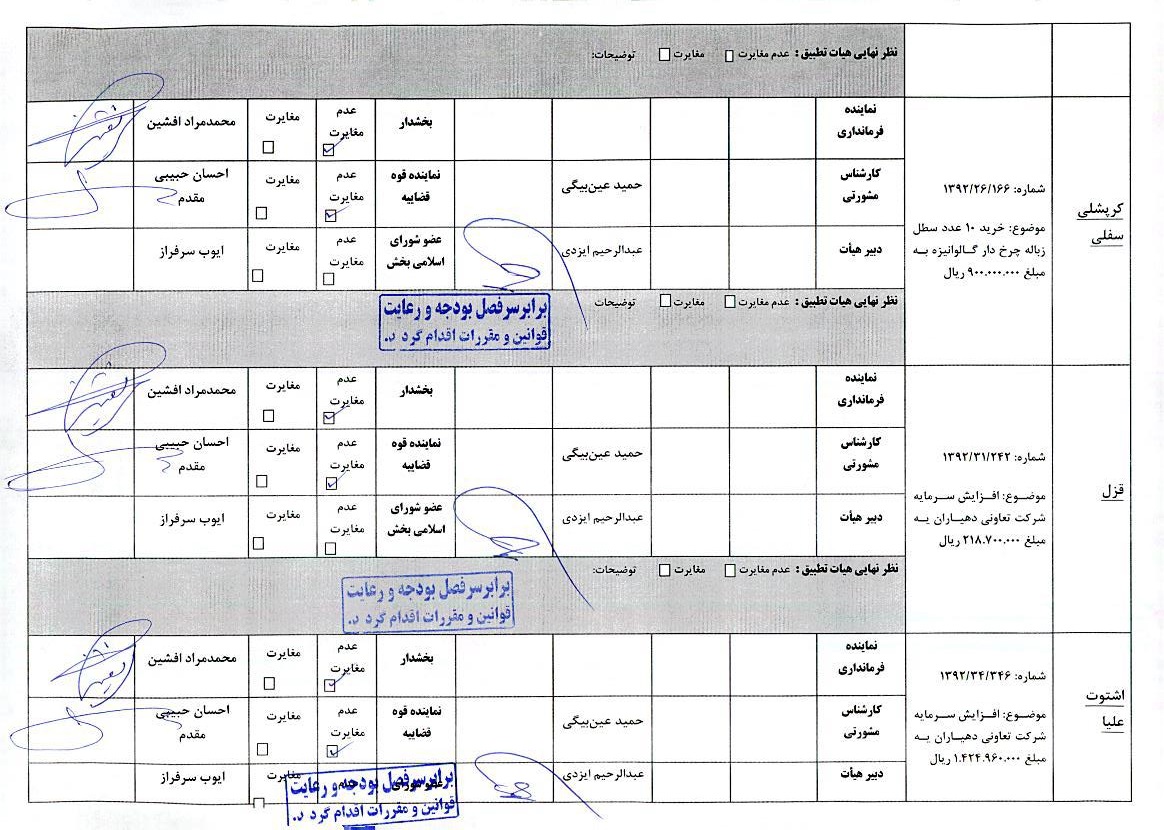 نظر نهایی هیات تطبیق: عدم مغایرت ☐ مغایرت ☐ توضیحات:
کرپشلی
سفلی
شماره: ۱۳۹۲/۲۶/۱۶۶
موضوع: خرید ۱۰ عدد سطل
زباله چرخ دار گالوانیزه به
مبلغ ۹۰۰.۰۰۰.۰۰۰ ریال
نماینده
فرمانداری
بخشدار
عدم
مغایرت
☑
مغایرت
☐
محمدمراد افشین
کارشناس
مشورتی
حمید عین‌بیگی
نماینده قوه
قضاییه
عدم
مغایرت
☑
مغایرت
☐
احسان حبیبی
مقدم
دبیر هیأت
عبدالرحیم ایزدی
عضو شورای
اسلامی بخش
عدم
مغایرت
☐
مغایرت
☐
ایوب سرفراز
نظر نهایی هیات تطبیق: عدم مغایرت ☐ مغایرت ☐ توضیحات
برابر سرفصل بودجه و رعایت
قوانین و مقررات اقدام گردد.
قزل
شماره: ۱۳۹۲/۳۱/۲۴۲
موضوع: افزایش سرمایه
شرکت تعاونی دهیاران به
مبلغ ۲۱۸.۷۰۰.۰۰۰ ریال
نماینده
فرمانداری
بخشدار
عدم
مغایرت
☑
مغایرت
☐
محمدمراد افشین
کارشناس
مشورتی
حمید عین‌بیگی
نماینده قوه
قضاییه
عدم
مغایرت
☑
مغایرت
☐
احسان حبیبی
مقدم
دبیر هیأت
عبدالرحیم ایزدی
عضو شورای
اسلامی بخش
عدم
مغایرت
☐
مغایرت
☐
ایوب سرفراز
نظر نهایی هیات تطبیق: عدم مغایرت ☐ مغایرت ☐ توضیحات:
برابر سرفصل بودجه و رعایت
قوانین و مقررات اقدام گردد.
اشتوت
علیا
شماره: ۱۳۹۲/۳۴/۳۴۶
موضوع: افزایش سرمایه
شرکت تعاونی دهیاران به
مبلغ ۱.۴۲۴.۹۶۰.۰۰۰ ریال
نماینده
فرمانداری
بخشدار
عدم
مغایرت
☑
مغایرت
☐
محمدمراد افشین
کارشناس
مشورتی
حمید عین‌بیگی
نماینده قوه
قضاییه
عدم
مغایرت
☑
مغایرت
☐
احسان حبیبی
مقدم
دبیر هیأت
عبدالرحیم ایزدی
عضو شورای
عدم
مغایرت
☐
ایوب سرفراز
برابر سرفصل بودجه و رعایت
قوانین و مقررات اقدام گردد.